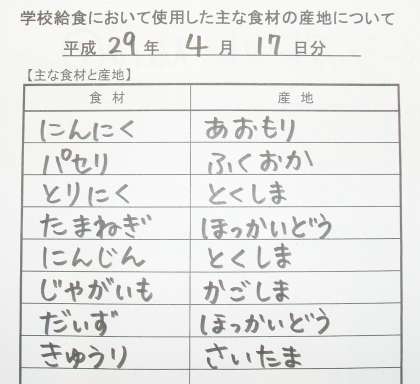 学校給食において使用した主な食材の産地について
平成 29 年 4 月 17 日分
【主な食材と産地】
食材 産地
にんにく あおもり
パセリ ふくおか
とりにく とくしま
たまねぎ ほっかいどう
にんじん とくしま
じゃがいも かごしま
だいず ほっかいどう
きゅうり さいたま